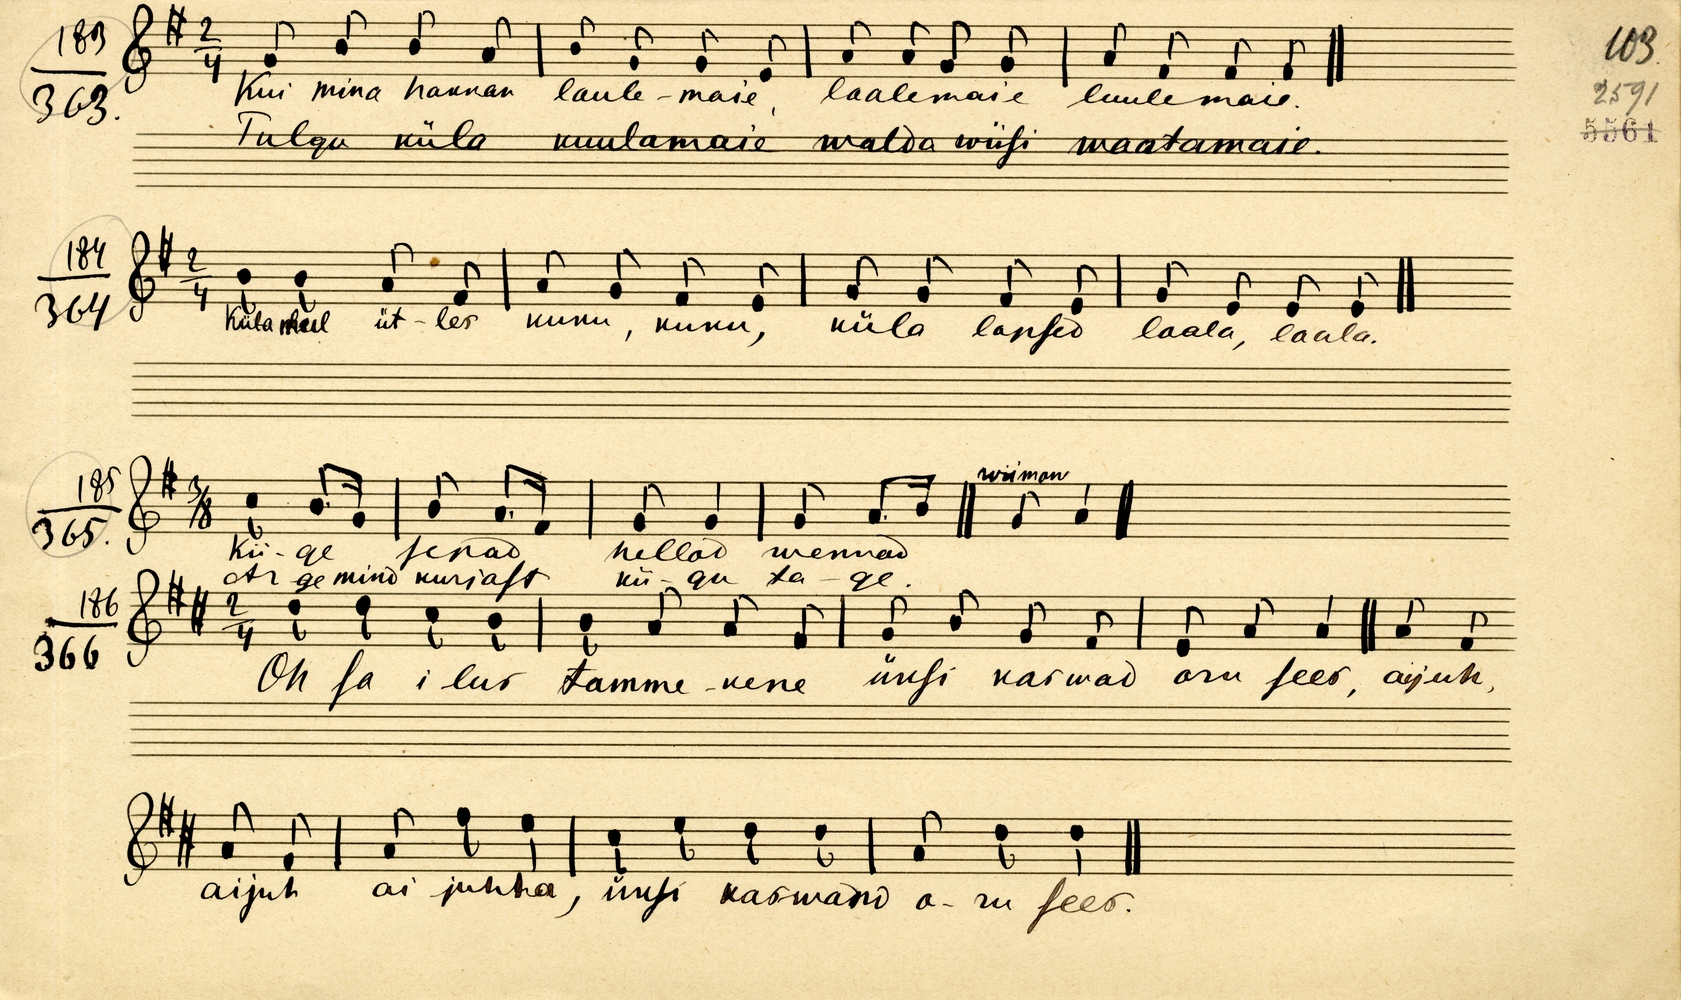 183
363.
103.
2591
5561
2/4
Kui mina hakkan laule-maie, laalemaie luulemaie.
Tulgu küla kuulamaie walda wiisi waatamaie.
184
364
2/4
Küla üt-les kuku, kuku, küla lapsed laala, laala.
185
365.
3/8
wiiman
Kii-ge sepad hellad wennad
Ärgemind kurjast kii-gu ta-ge.
186
366
2/4
Oh sa ilus tamme-kene üksi kaswad oru sees, aijuh,
aijuh ai juhha, üksi kaswasid o-ru sees.